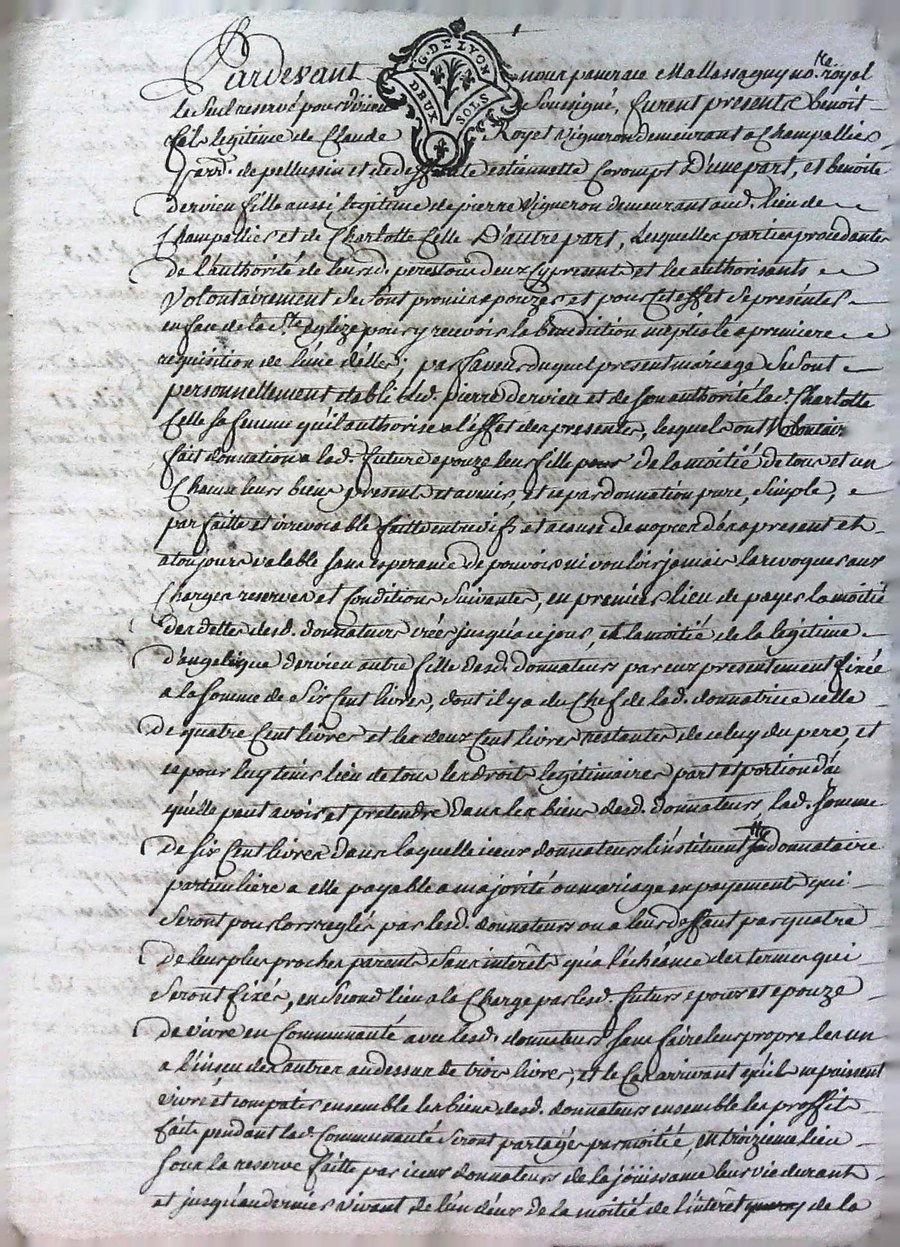 Pardevant nous pancrace Mallassagny no.re royal
le Seul reservé pour Virieu Soussigné, furent presents benoit
fils legitime de Claude Royet Vigneron demeurant a Champallies
parr. de pellussin et de deffunte estiennette Corompt D'une part, et benoite
dervieu fille aussi legitime de pierre Vigneron demeurant aud. lieu de
Champallies et de Charlotte Celle D'autre part, Lesquelles parties procedantes
de l'authorité de leursd. peres tous deux cy presents et les authorisants
Volontairement se sont promis epouzer et pour cet effet se presenter
en face de la Ste eglize pour y recevoir la benediction nuptiale a premiere
requisition de l'une d'elles; par faveur duquel present mariage se sont
personnellement etablis led. pierre dervieu et de son authorité lad. Charlotte
Celle sa femme qu'il authorise a l'effet des presentes, lesquels ont
fait donnation a lad. future epouze leur fille de la moitié de tous et un
Chacun leurs biens presents et avenir, et ce par donnation pure, simple,
parfaitte et irrevocable faitte entre vifs et a cause de noces des a present et
a toujours valable sans esperance de pouvoir ni vouloir jamais la revoquer aux
Charges reserves et Conditions Suivantes, en premier lieu de payer la moitié
des dettes desd. donnateurs créés jusqu'a ce jour, et la moitié de la legitime
d'angelique dervieu autre fille desd. donnateurs par eux presentement fixée
a la somme de Six Cent livres, dont il y a du Chef de lad. donnatrice celle
de quatre Cent livres et les deux Cent livres restantes de celuy du pere, et
ce pour luy tenir lieu de tous les droits legitimaires part et portion d'ai
qu'elle peut avoir et pretendre dans les biens desd. donnateurs lad. somme
de six Cent livres dans laquelle iceux donnateurs l'instituent donnataire
particuliere a elle payable a majorité ou mariage en payements qui
seront pour lors reglés par lesd. donnateurs ou a leur deffaut par quatre
de leurs plus proches parents sans interêts qu'a l'échéance des termes qui
seront fixés, en second lieu a la Charge par lesd. futurs epoux et epouze
de vivre en Communauté avec lesd. donnateurs sans faire leur propre les un
a l'insçu des autres au dessus de trois livres, et le Cas arrivant qu'ils ne puissent
vivre et compatir ensemble les biens desd. donnateurs ensemble les proffits
faits pendant lad. Communauté seront partagés par moitié, en troizieme lieu
sous la reserve faitte par iceux donnateurs de la joüissance leur vie durant
et jusqu'au dernier vivant de l'un deux de la moitié de l'interêt de la
G. DE LYON
DEUX SOLS